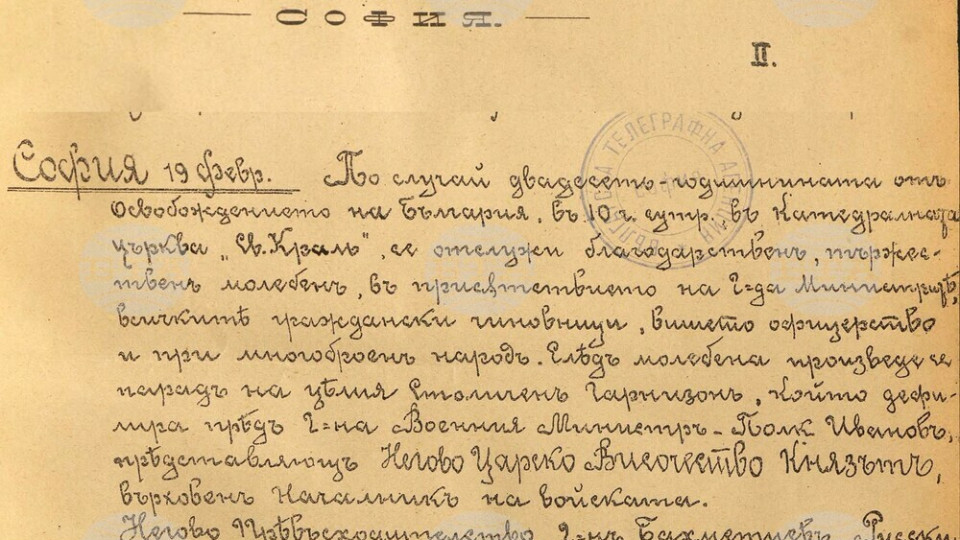 СОФИЯ.
II.
София 19 февр. По случай двадесеть-годишнината отъ
Освобождението на България, въ 10 ч. сутр., въ Катедралната
църква „Св. Краль“, се отслужи благодарственъ, тържес-
твенъ молебенъ, въ присѫтствието на Г-да Министритѣ,
всичкитѣ граждански чиновници, висшето офицерство
и при многоброенъ народъ. Слѣдъ молебена произведе се
парадъ на цѣлия Столиченъ Гарнизонъ, който дефи-
лира прѣдъ Г-на Военния Министръ - Полк. Ивановъ,
прѣдставляющъ Негово Царско Височество Князътъ,
върховенъ Началникъ на войската.
Негово Прѣвъсходителство Г-нъ Бахметиевъ, Русски
ТЕЛЕГРАФНА